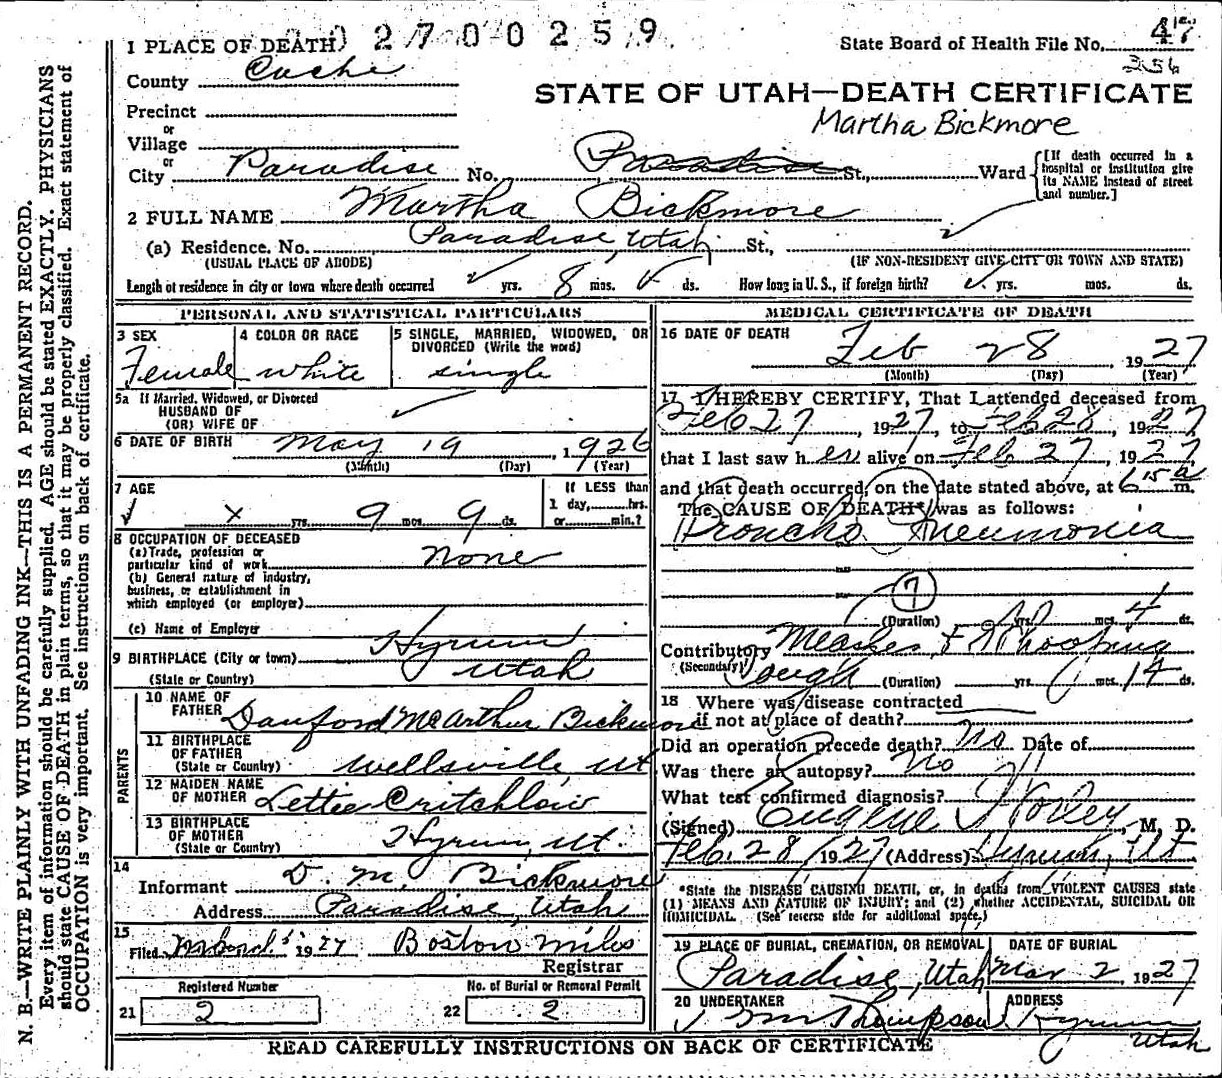 2 7 0 0 2 5 9
1 PLACE OF DEATH
State Board of Health File No. 47
356
County Cache
STATE OF UTAH—DEATH CERTIFICATE
Martha Bickmore
Precinct
or
Village
or
City Paradise No. Paradise St., Ward [If death occurred in a hospital or institution give its NAME instead of street and number.]
2 FULL NAME Martha Bickmore
(a) Residence, No. Paradise, Utah St.,
(USUAL PLACE OF ABODE) (IF NON-RESIDENT GIVE CITY OR TOWN AND STATE)
Length of residence in city or town where death occurred yrs. 8 mos. ds. How long in U. S., if foreign birth? yrs. mos. ds.
PERSONAL AND STATISTICAL PARTICULARS
3 SEX
Female
4 COLOR OR RACE
white
5 SINGLE, MARRIED, WIDOWED, OR DIVORCED (Write the word)
single
5a If Married, Widowed, or Divorced
HUSBAND OF
(OR) WIFE OF
6 DATE OF BIRTH May 19, 1926
(Month) (Day) (Year)
7 AGE
x yrs. 9 mos. 9 ds.
If LESS than
1 day, hrs.
or min.?
8 OCCUPATION OF DECEASED
(a) Trade, profession or
particular kind of work None
(b) General nature of industry,
business, or establishment in
which employed (or employer)
(c) Name of Employer
9 BIRTHPLACE (City or town) Hyrum
(State or Country) Utah
PARENTS
10 NAME OF
FATHER Danford McArthur Bickmore
11 BIRTHPLACE
OF FATHER
(State or Country) Wellsville, Ut
12 MAIDEN NAME
OF MOTHER Lettie Critchlow
13 BIRTHPLACE
OF MOTHER
(State or Country) Hyrum, Ut.
14
Informant D. M. Bickmore
Address Paradise, Utah
15
Filed March 1927 Boston Miles
Registrar
Registered Number
21 2
No. of Burial or Removal Permit
22 2
MEDICAL CERTIFICATE OF DEATH
16 DATE OF DEATH
Feb 28 1927
(Month) (Day) (Year)
17 I HEREBY CERTIFY, That I attended deceased from
Feb 27, 1927, to Feb 28, 1927
that I last saw her alive on Feb 27, 1927
and that death occurred, on the date stated above, at 6 15 a m.
The CAUSE OF DEATH* was as follows:
Broncho Pneumonia
7
(Duration) yrs. mos. 4 ds.
Contributory Measles & Whooping
(Secondary) Cough (Duration) yrs. mos. 14 ds.
18 Where was disease contracted
if not at place of death?
Did an operation precede death? No Date of
Was there an autopsy? No
What test confirmed diagnosis?
(Signed) Eugene Worley, M. D.
Feb. 28, 1927 (Address) Hyrum, Ut
*State the DISEASE CAUSING DEATH, or, in deaths from VIOLENT CAUSES state
(1) MEANS AND NATURE OF INJURY; and (2) whether ACCIDENTAL, SUICIDAL OR
HOMICIDAL. (See reverse side for additional space.)
19 PLACE OF BURIAL, CREMATION, OR REMOVAL
Paradise, Utah
DATE OF BURIAL
Mar 2 1927
20 UNDERTAKER
Thompson
ADDRESS
Hyrum
Utah
READ CAREFULLY INSTRUCTIONS ON BACK OF CERTIFICATE
N. B.—WRITE PLAINLY WITH UNFADING INK—THIS IS A PERMANENT RECORD.
Every item of information should be carefully supplied. AGE should be stated EXACTLY. PHYSICIANS
should state CAUSE OF DEATH in plain terms, so that it may be properly classified. Exact statement of
OCCUPATION is very important. See instructions on back of certificate.